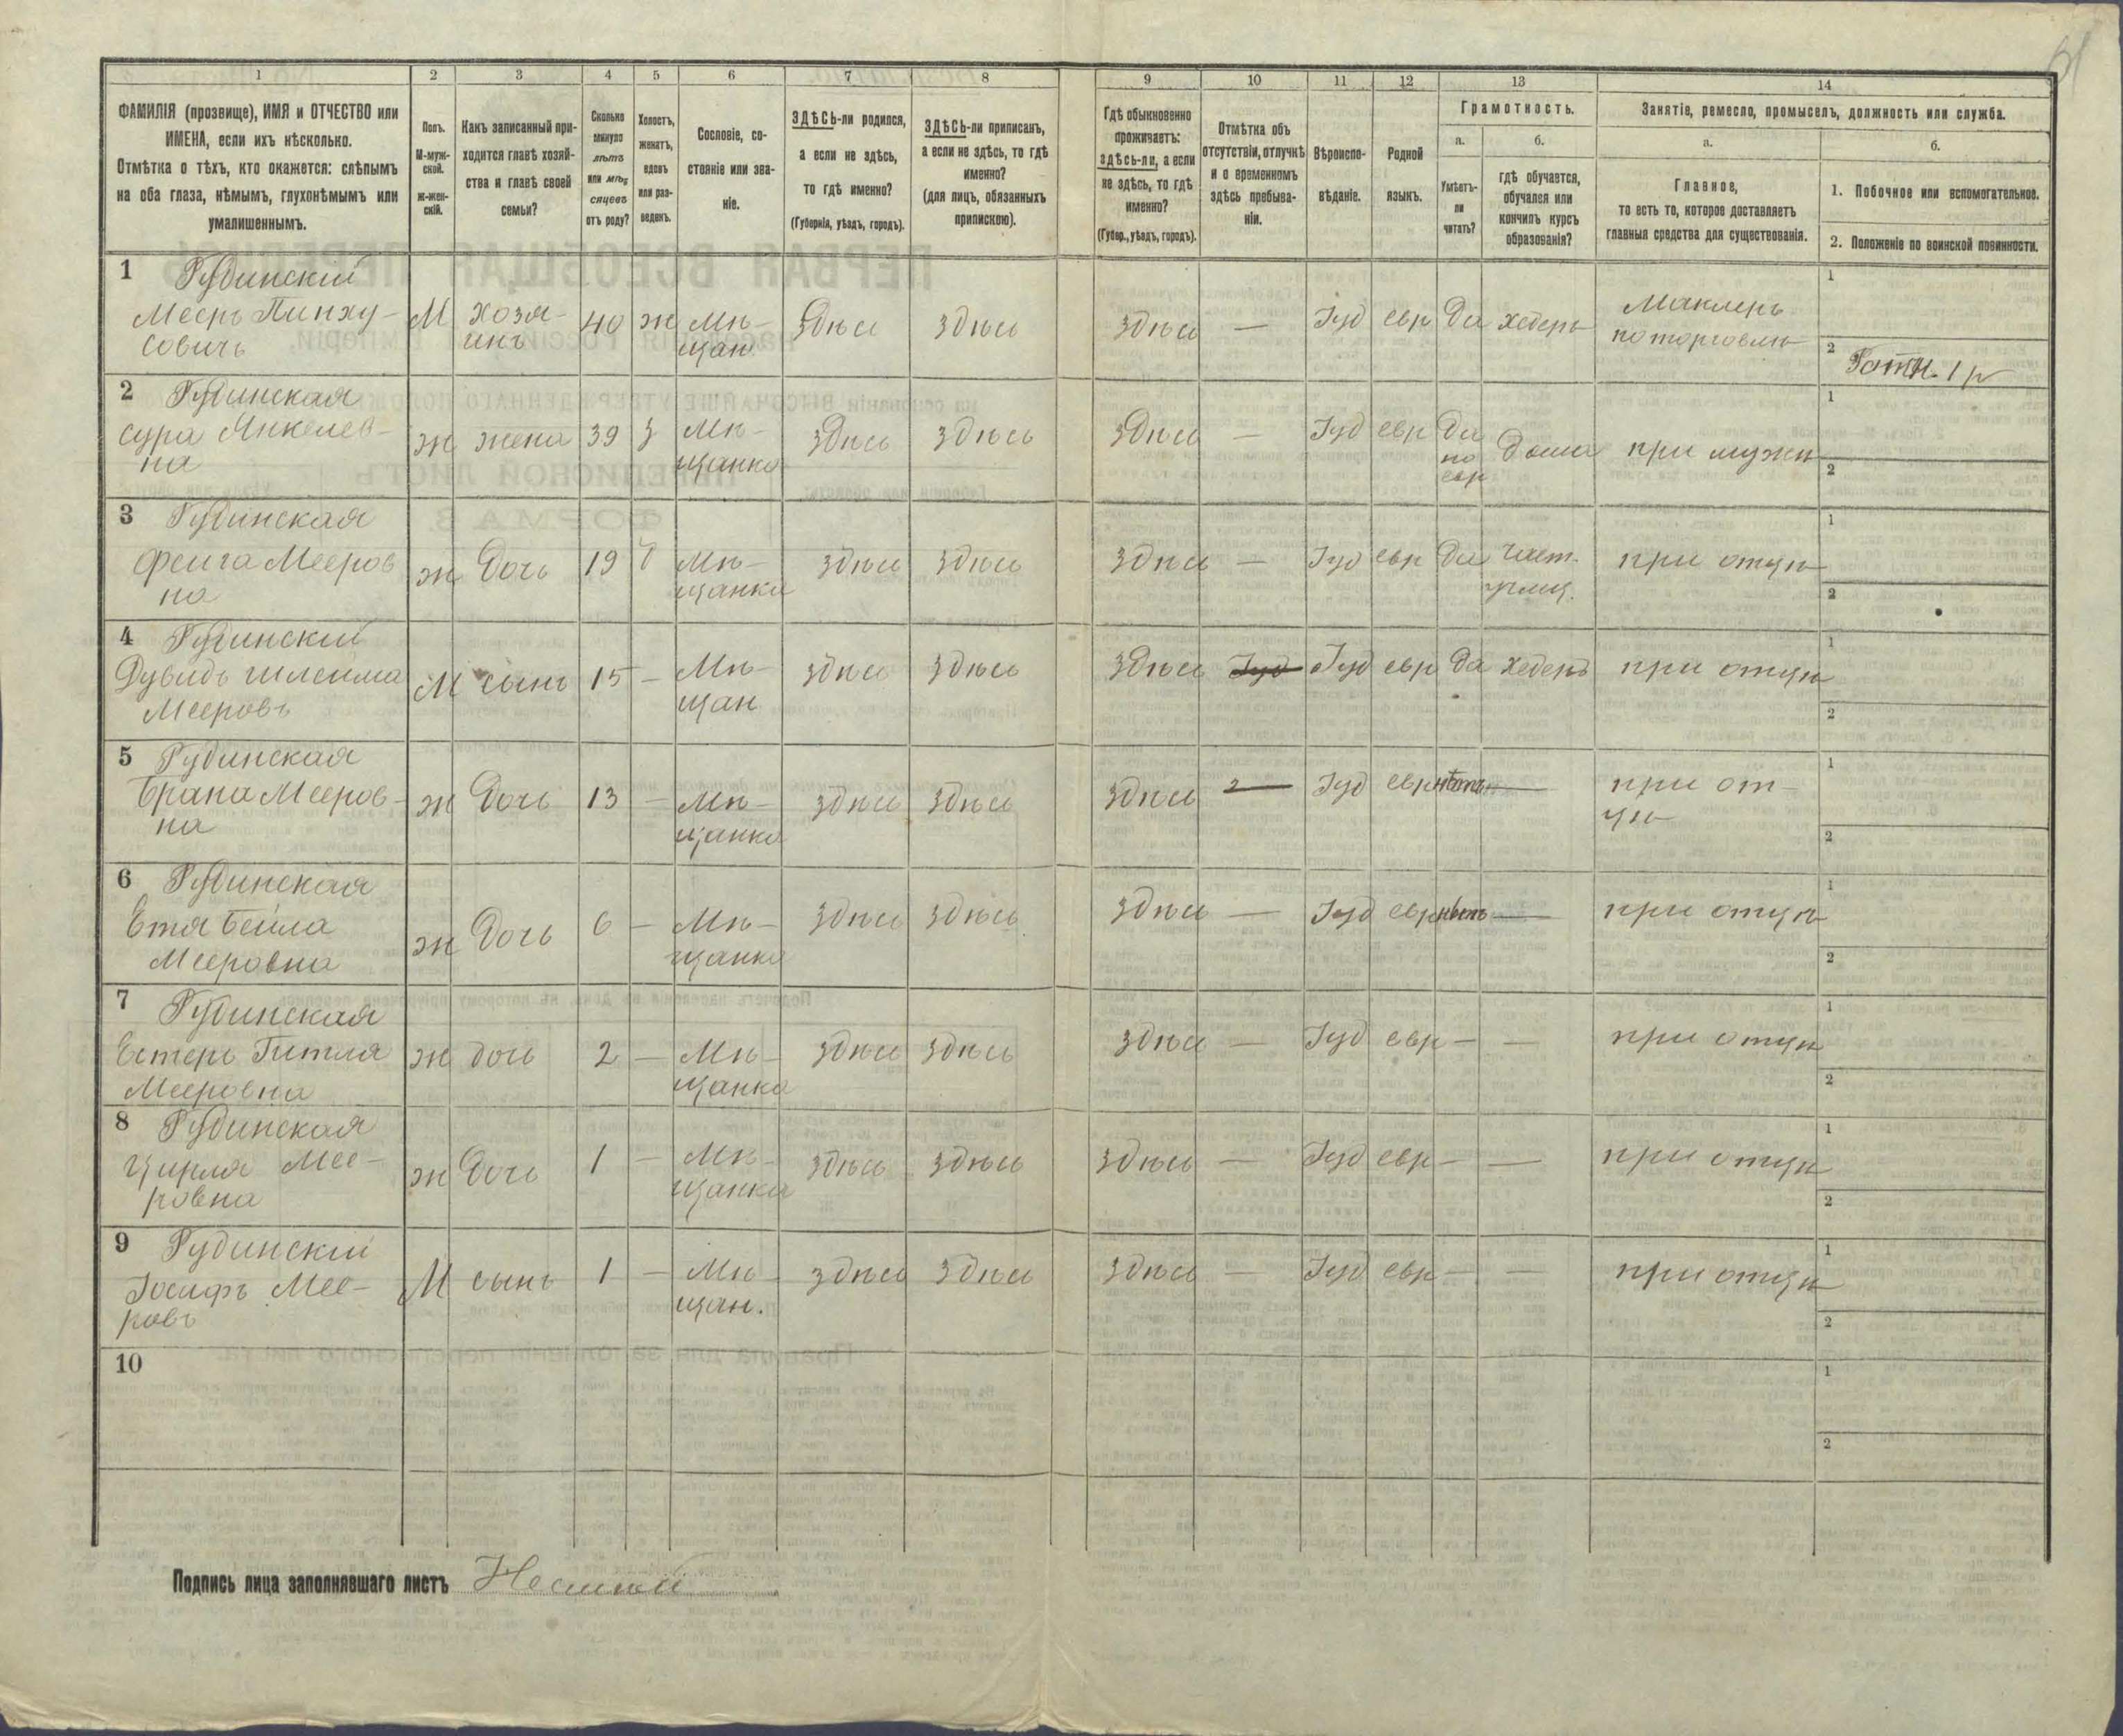 61
1 2 3 4 5 6 7 8 9 10 11 12 13 14
ФАМИЛІЯ (прозвище), ИМЯ и ОТЧЕСТВО или
ИМЕНА, если ихъ нѣсколько.
Отмѣтка о тѣхъ, кто окажется: слѣпымъ
на оба глаза, нѣмымъ, глухонѣмымъ или
умалишеннымъ.
Полъ.
М-муж-
ской.
ж-жен-
скій.
Какъ записанный при-
ходится главѣ хозяй-
ства и главѣ своей
семьи?
Сколько
минуло
лѣтъ
или мѣ-
сяцевъ
отъ роду?
Холостъ,
женатъ,
вдовъ
или раз-
веденъ.
Сословіе, со-
стояніе или зва-
ніе.
ЗДѢСЬ-ли родился,
а если не здѣсь,
то гдѣ именно?
(Губернія, уѣздъ, городъ).
ЗДѢСЬ-ли приписанъ,
а если не здѣсь, то гдѣ
именно?
(для лицъ, обязанныхъ
припискою).
Гдѣ обыкновенно
проживаетъ:
здѣсь-ли, а если
не здѣсь, то гдѣ
именно?
(Губер., уѣздъ, городъ).
Отмѣтка объ
отсутствіи, отлучкѣ
и о временномъ
здѣсь пребыва-
ніи.
Вѣроиспо-
вѣданіе.
Родной
языкъ.
Грамотность.
а.
Умѣетъ-
ли
читать?
б.
гдѣ обучается,
обучался или
кончилъ курсъ
образованія?
Занятіе, ремесло, промыселъ, должность или служба.
а.
Главное,
то есть то, которое доставляетъ
главныя средства для существованія.
б.
1. Побочное или вспомогательное.
2. Положеніе по воинской повинности.
1 Рудинскій
Меерь Пинху-
совичъ
М хозя-
инъ
40 ж Мѣ-
щан
здѣсь здѣсь здѣсь — Іуд евр да хедеръ
Маклеръ
по торговлѣ
1
2 Ратн. 1 р
2 Рудинская
Сура Янкелев-
на
ж жена 39 З Мѣ-
щанка
здѣсь здѣсь здѣсь — Іуд евр да
по
евр
дома при мужѣ
1
2
3 Рудинская
Фейга Мееров
на
ж дочь 19 Мѣ-
щанка
здѣсь здѣсь здѣсь — Іуд евр да част.
училищ.
при отцѣ
1
2
4 Рудинскій
Дувидъ Шлейма
Мееровъ
М сынъ 15 — Мѣ-
щан
здѣсь здѣсь здѣсь Іуд Іуд евр да хедеръ при отцѣ
1
2
5 Рудинская
Брана Мееров-
на
ж дочь 13 — Мѣ-
щанка
здѣсь здѣсь здѣсь — Іуд евр нѣтъ — при от-
цѣ
1
2
6 Рудинская
Етя Бейла
Мееровна
ж дочь 6 — Мѣ-
щанка
здѣсь здѣсь здѣсь — Іуд евр нѣтъ — при отцѣ
1
2
7 Рудинская
Естеръ Гитля
Мееровна
ж дочь 2 — Мѣ-
щанка
здѣсь здѣсь здѣсь — Іуд евр — — при отцѣ
1
2
8 Рудинская
Цирля Мее-
ровна
ж дочь 1 — Мѣ-
щанка
здѣсь здѣсь здѣсь — Іуд евр — — при отцѣ
1
2
9 Рудинскій
Іосифъ Мее-
ровъ
М сынъ 1 — Мѣ-
щан.
здѣсь здѣсь здѣсь — Іуд евр — — при отцѣ
1
2
10
1
2
Подпись лица заполнявшаго листъ